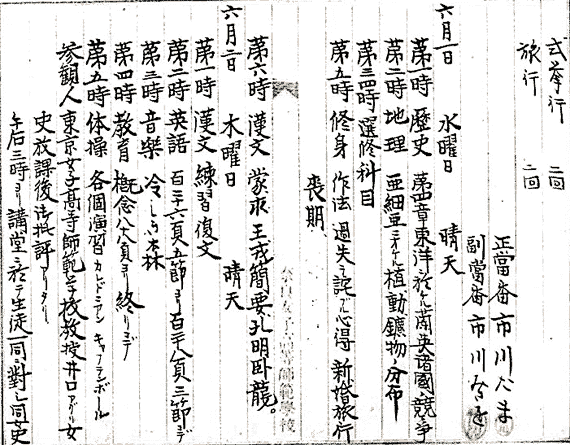 式挙行 二回
旅行 二回
正當番 市川
副當番 市川
六月一日 水曜日 晴天
第一時 歴史 第四章東洋ニ於ケル欧諸國ノ競争
第二時 地理 亜細亜ニオケル植動鑛物ノ分布
第三四時 選修科目
第五時 修身 作法 過失ヲ詫ブル心得 新婚旅行
喪期、
第六時 漢文 蒙求 王戎簡要、孔明臥龍。
六月二日 木曜日 晴天
第一時 漢文 練習 復文
第二時 英語 百二十六頁五節ヨリ百二十八頁三節マデ
第三時 音樂 冷しき森
第四時 教育 概念 八八頁ヨリ終リマデ
第五時 体操 各個演習 カレドニアン キャプテンボール
参観人 東京女子高等師範学校教授井口アグリ女
史放課後御批評アリタリ
午后三時ヨリ講堂ニ於テ生徒一同ニ對し同女史
奈良女子高等師範學校